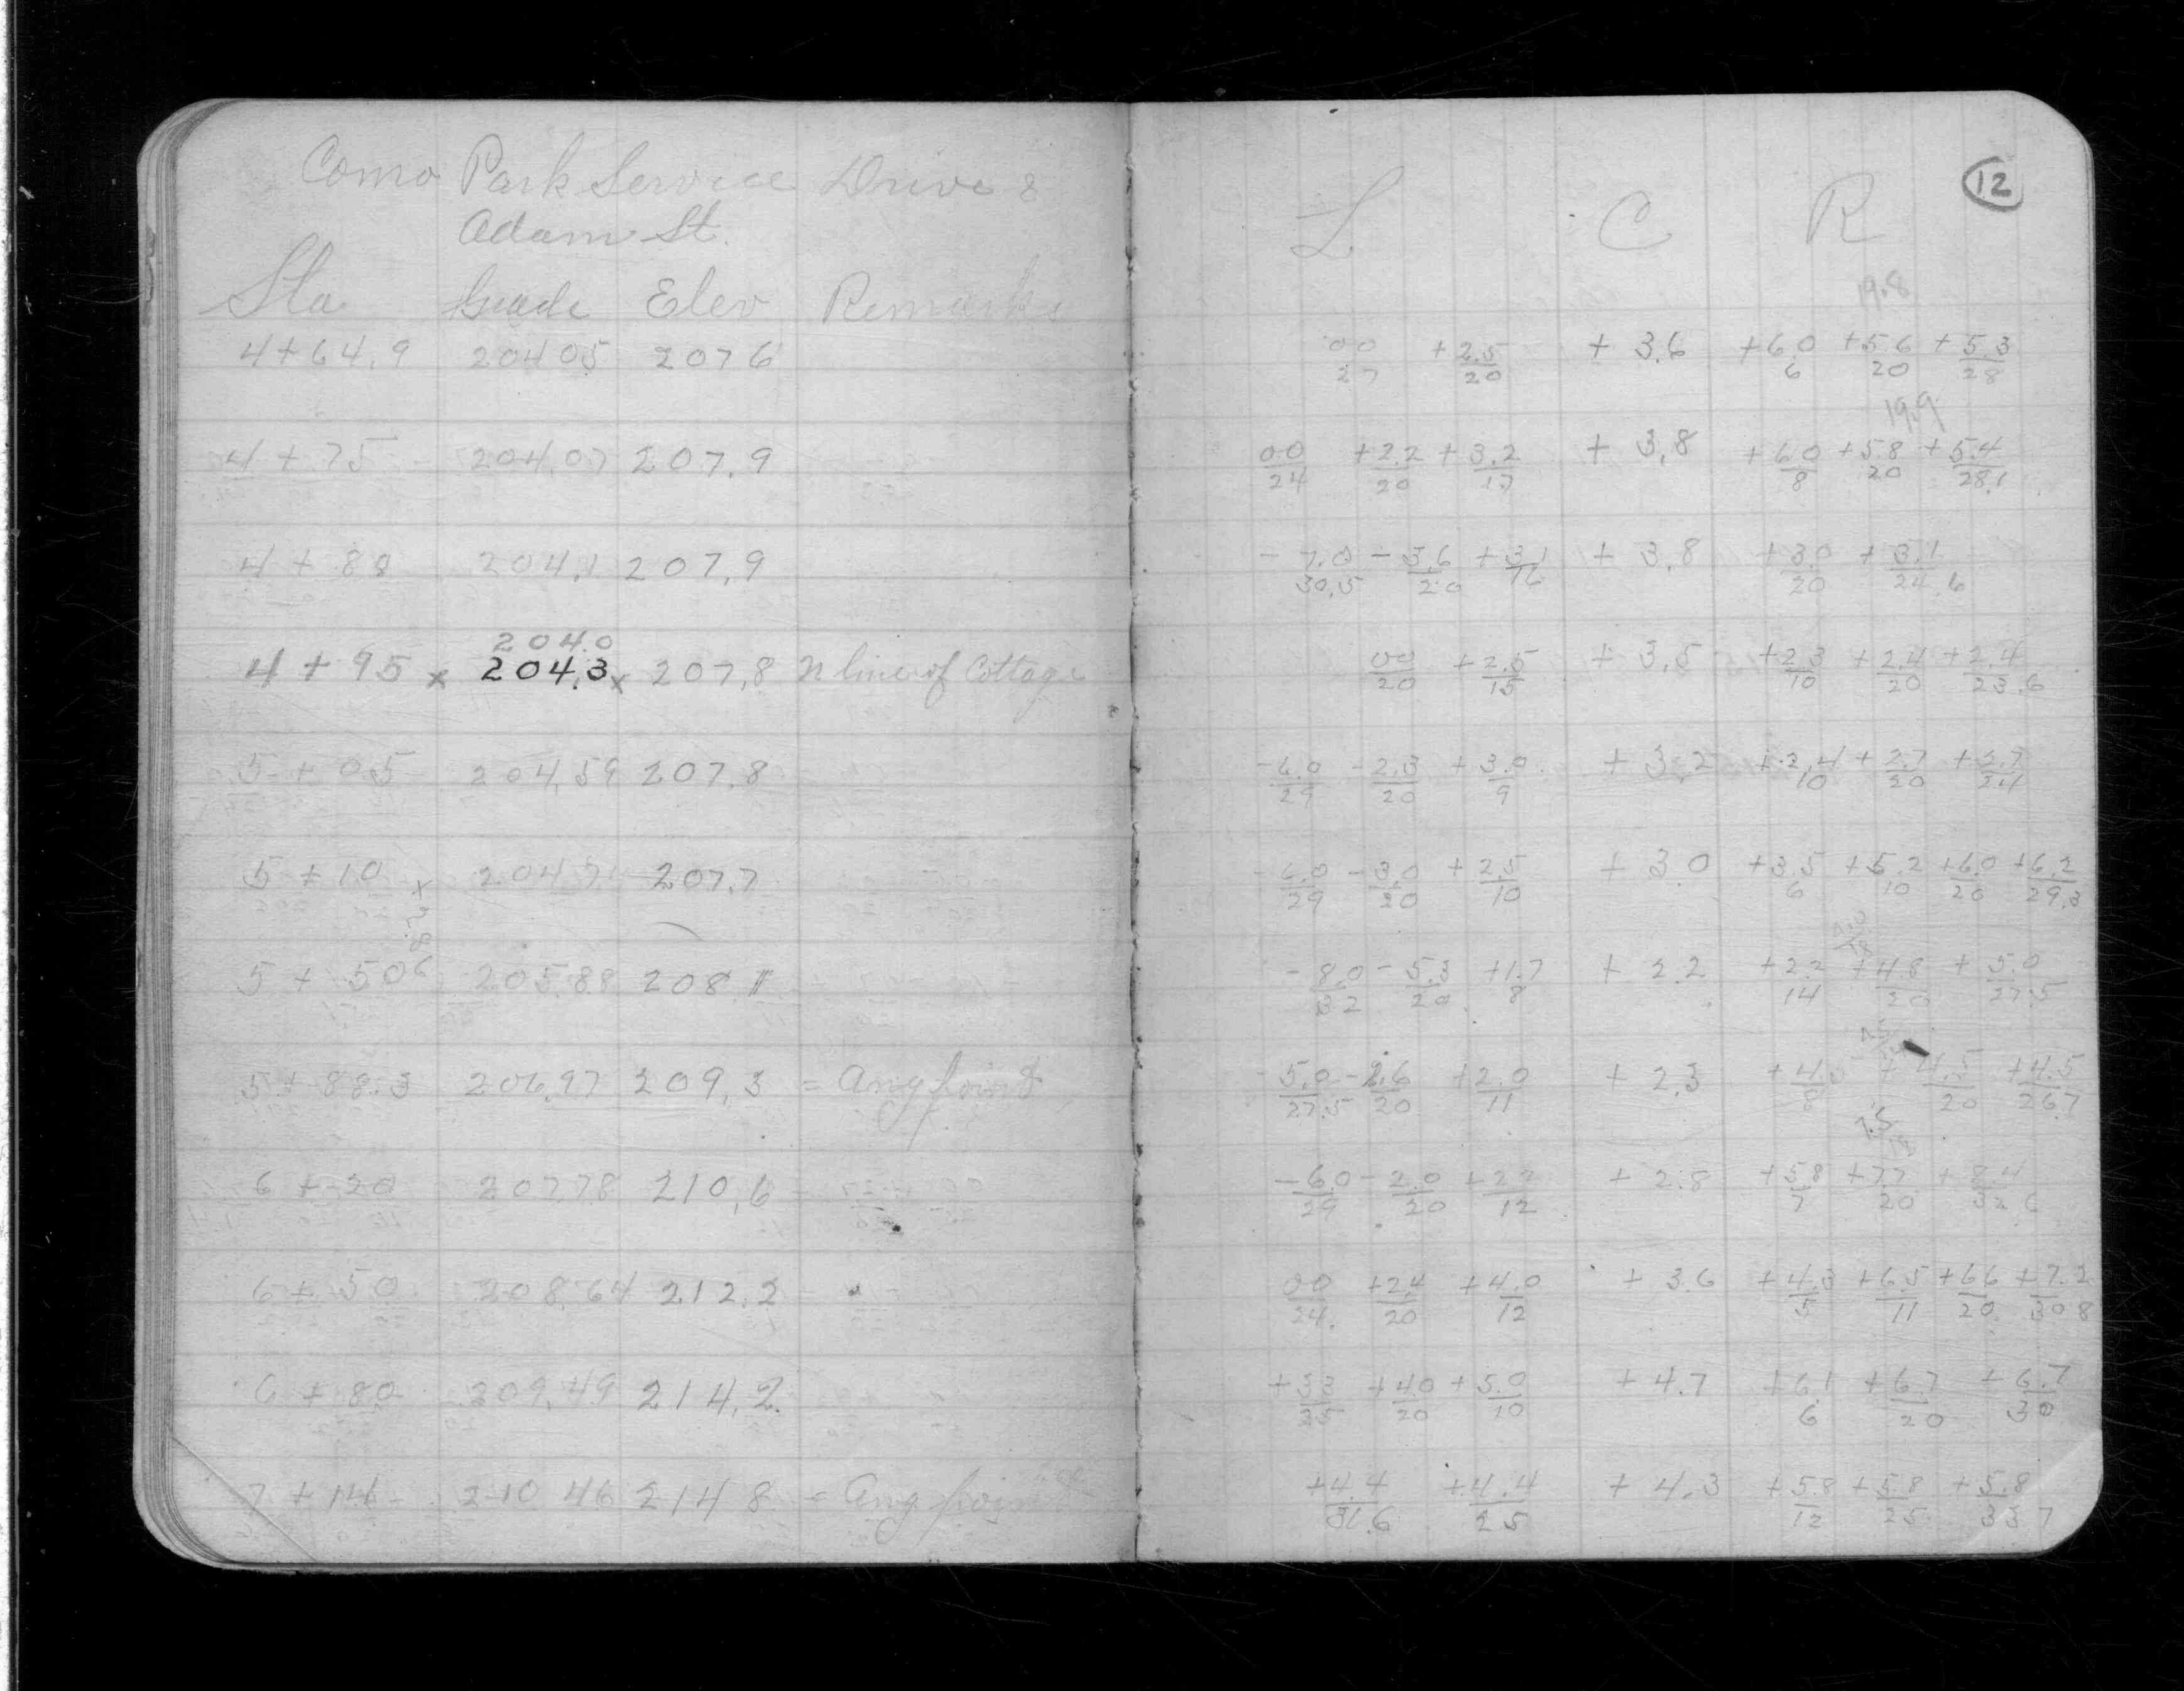 Como Park Service Drive &
Adam St.
Sta Grade Elev Remarks
4+64.9 204.05 207.6
4+75 204.07 207.9
4+88 204.1 207.9
204.0
4+95 x 204.3 x 207.8 N line of Cottage
5+05 204.59 207.8
5+10 x 207.7
5+50 205.88 208.1
5+88.3 206.97 209.3 = Ang point
6+20 207.78 210.6
6+50 208.64 212.2
6+80 209.49 214.2
7+14 210.46 214.8 = Ang point
12
L C R
19.8
00/27 +2.5/20 +3.6 +6.0/6 +5.6/20 +5.3/28
19.9
00/24 +2.2/20 +3.2/17 +3.8 +6.0/8 +5.8/20 +5.4/28.1
-7.0/30.5 -3.6/20 +3.1/16 +3.8 +3.0/20 +3.1/24.6
00/20 +2.5/15 +3.5 +2.3/10 +2.4/20 +2.4/23.6
-6.0/29 -2.3/20 +3.0/9 +3.2 +2.4/10 +2.7/20 +2.7/24
-6.0/29 -3.0/20 +2.5/10 +3.0 +3.5/6 +5.2/10 +6.0/20 +6.2/29.3
-8.0/32 -5.3/20 +1.7/8 +2.2 +2.2/14 +4.8/20 +5.0/27.5
-5.0/27.5 -2.6/20 +2.0/11 +2.3 +4.5/8 +4.5/20 +4.5/26.7
7.5/18
-6.0/29 -2.0/20 +2.2/12 +2.8 +5.8/7 +7.7/20 +8.4/32.6
00/24 +2.4/20 +4.0/12 +3.6 +4.3/5 +6.5/11 +6.6/20 +7.2/30.8
+3.3/25 +4.0/20 +5.0/10 +4.7 +6.1/6 +6.7/20 +6.7/30
+4.4/31.6 +4.4/25 +4.3 +5.8/12 +5.8/25 +5.8/33.7